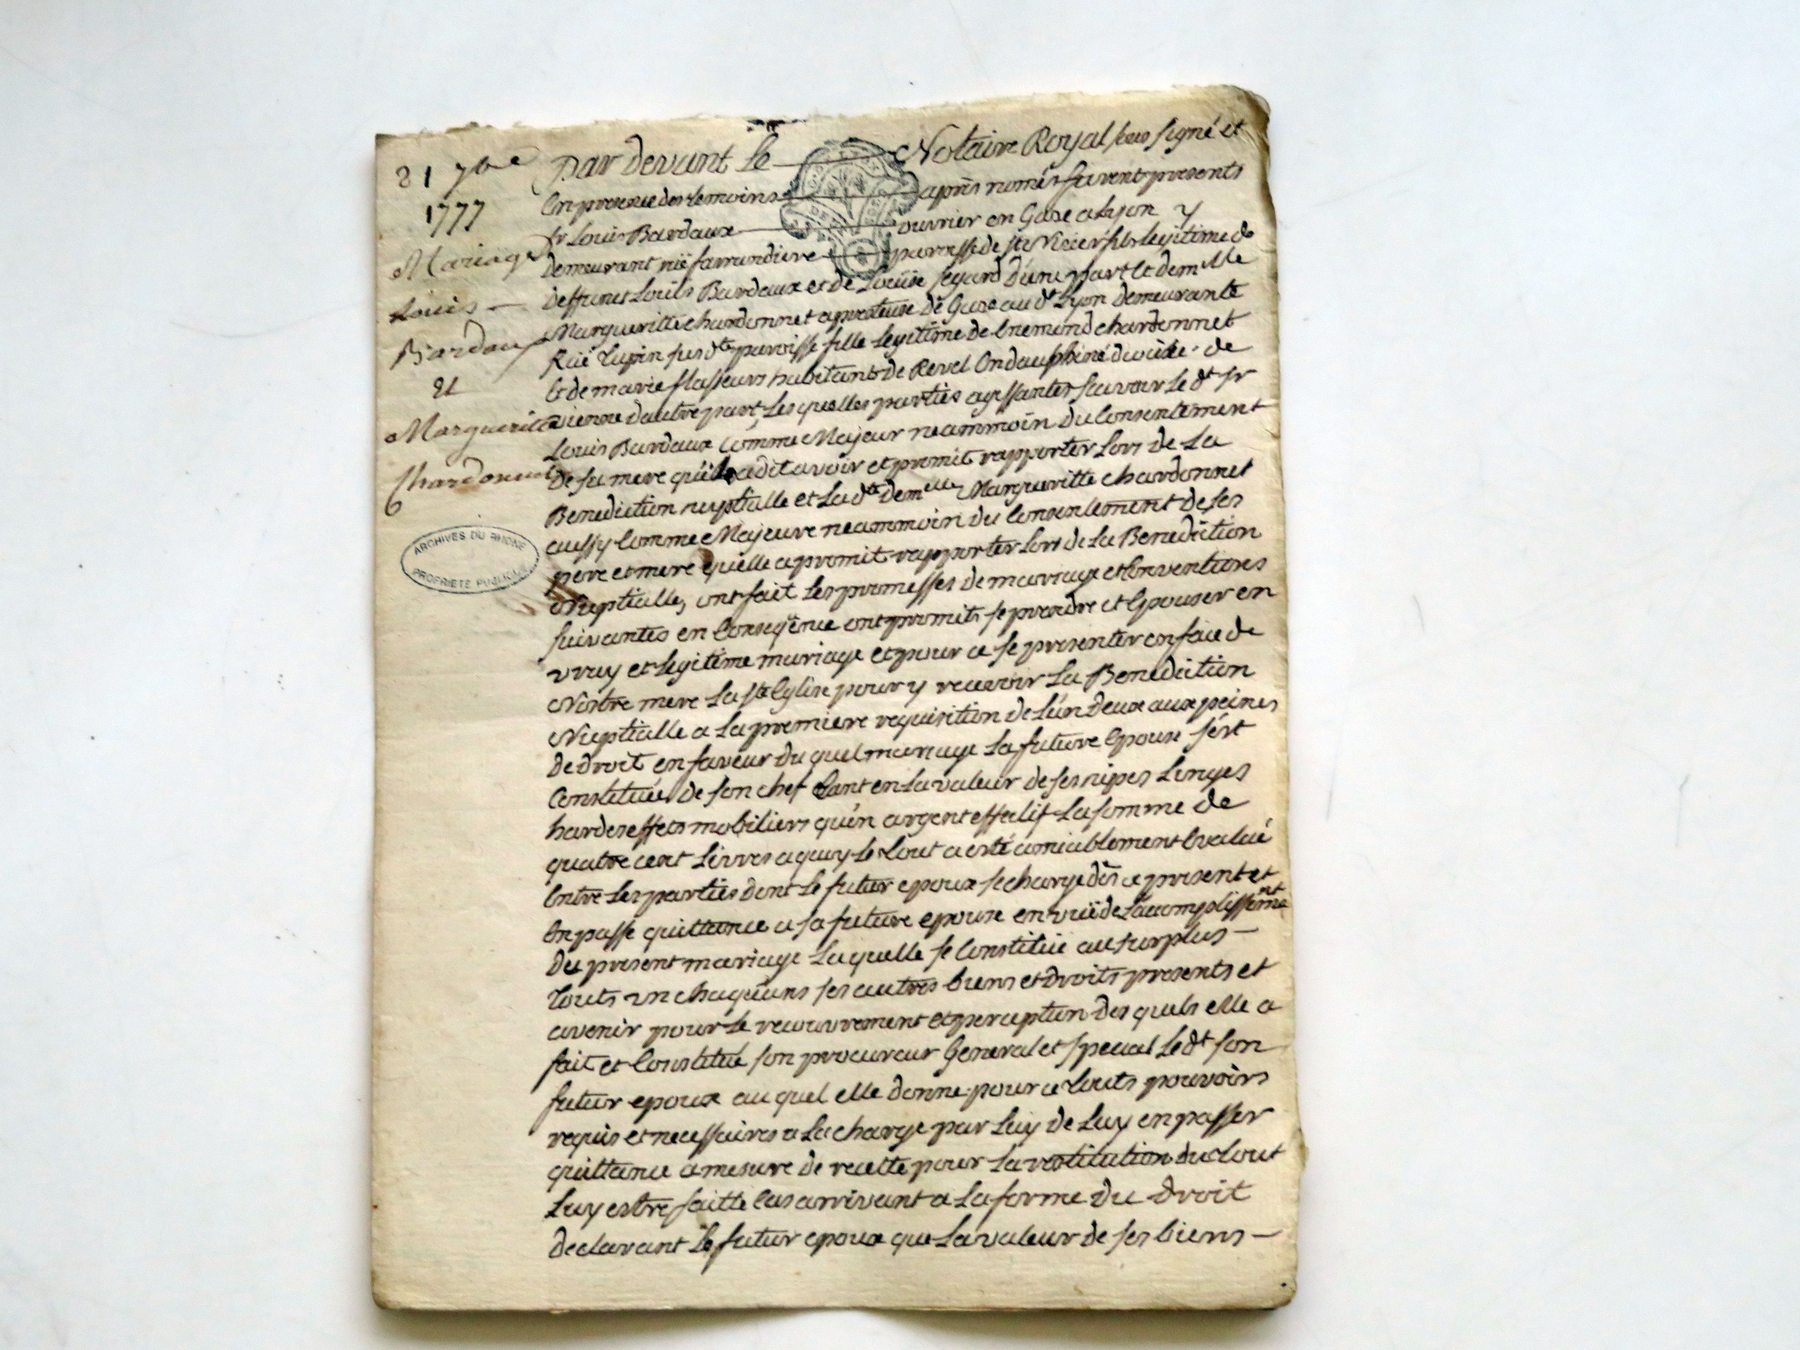 21 7bre
1777
Mariage
Louis
Bardaux
et
Margueritte
Chardonnet
ARCHIVES DU RHONE
PROPRIETE PUBLIQUE
Par devant le Notaire Royal sous signé et
en presence des temoins après només furent presents
sr Louis Bardaux ouvrier en Gaze a Lyon y
demeurant rüe farrandiere parroisse de st Nizier fils legitime de
deffunt Louis Bardaux et de Loüise segard d'une part Et demelle
Margueritte chardonnet apreteuse de Gaze au dt Lyon demeurante
Rüe Lupin sus dte paroisse fille legitime de Enemond chardonnet
et de marie flasseurs habitants de Revel en dauphiné de
vienne d'autre part, Les quelles parties agissantes sçavoir Le dt sr
Louis Bardaux Comme Majeur neammoin du Consentement
de sa mere qu'il a dit avoir et promit rapporter Lors de La
Benediction nuptialle et La dte demelle Margueritte chardonnet
aussy Comme Majeure neammoin du Consentement de ses
pere et mere qu'elle a promit rapporter Lors de La Benediction
Nuptialle, ont fait Les promesses de mariage et Conventions
suivantes en Conseqüence ont promits se prendre et Epouser en
vray et Legitime mariage et pour ce se presenter en face de
Nostre mere La ste Eglise pour y recevoir La Benediction
Nuptialle a La premiere requisition de L'un deux aux peines
de droit en faveur du quel mariage La future Epouse s'est
Constituée de son chef tant en La valeur de ses nipes Linges
hardes effets mobiliers qu'en argent effectif La somme de
quatre cent Livres a quoy Le tout a esté amiablement Evalué
Entre Les parties dont Le futur epoux se charge dès a present et
En passe quittance a sa future epouse en vuë de L'accomplissemt
du present mariage La quelle se Constitüe au surplus
touts un chaqu'uns ses autres biens et droits presents et
avenir pour Le recouvrement et perception des quels elle a
fait et Constitué son procureur General et special Le dt son
futur epoux au quel elle donne pour ce touts pouvoirs
requis et necessaires a La charge par Luy de Luy en passer
quittance a mesure de recette pour La restitution du tout
Luy estre faitte Cas arrivant a La forme du droit
declarant Le futur epoux que La valeur de ses biens